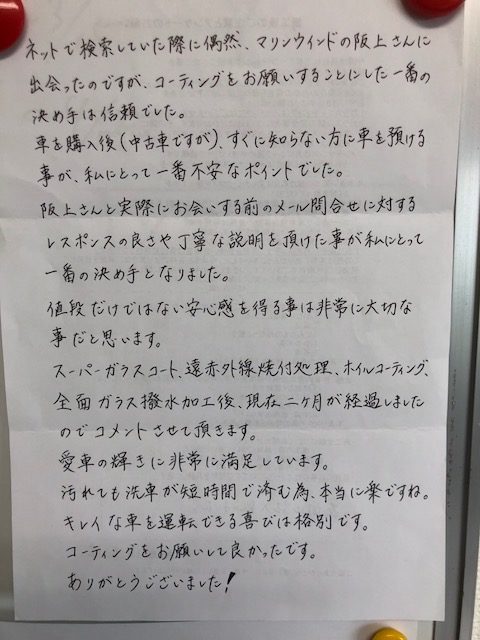 ネットで検索していた際に偶然、マリンウインドの阪上さんに
出会ったのですが、コーティングをお願いすることにした一番の
決め手は信頼でした。
車を購入後(中古車ですが)、すぐに知らない方に車を預ける
事が、私にとって一番不安なポイントでした。
阪上さんと実際にお会いする前のメール問合せに対する
レスポンスの良さや丁寧な説明を頂けた事が私にとって
一番の決め手となりました。
値段だけではない安心感を得る事は非常に大切な
事だと思います。
スーパーガラスコート、遠赤外線焼付処理、ホイルコーティング、
全面ガラス撥水加工後、現在二ヶ月が経過しました
のでコメントさせて頂きます。
愛車の輝きに非常に満足しています。
汚れても洗車が短時間で済む為、本当に楽ですね。
キレイな車を運転できる喜びは格別です。
コーティングをお願いして良かったです。
ありがとうございました!